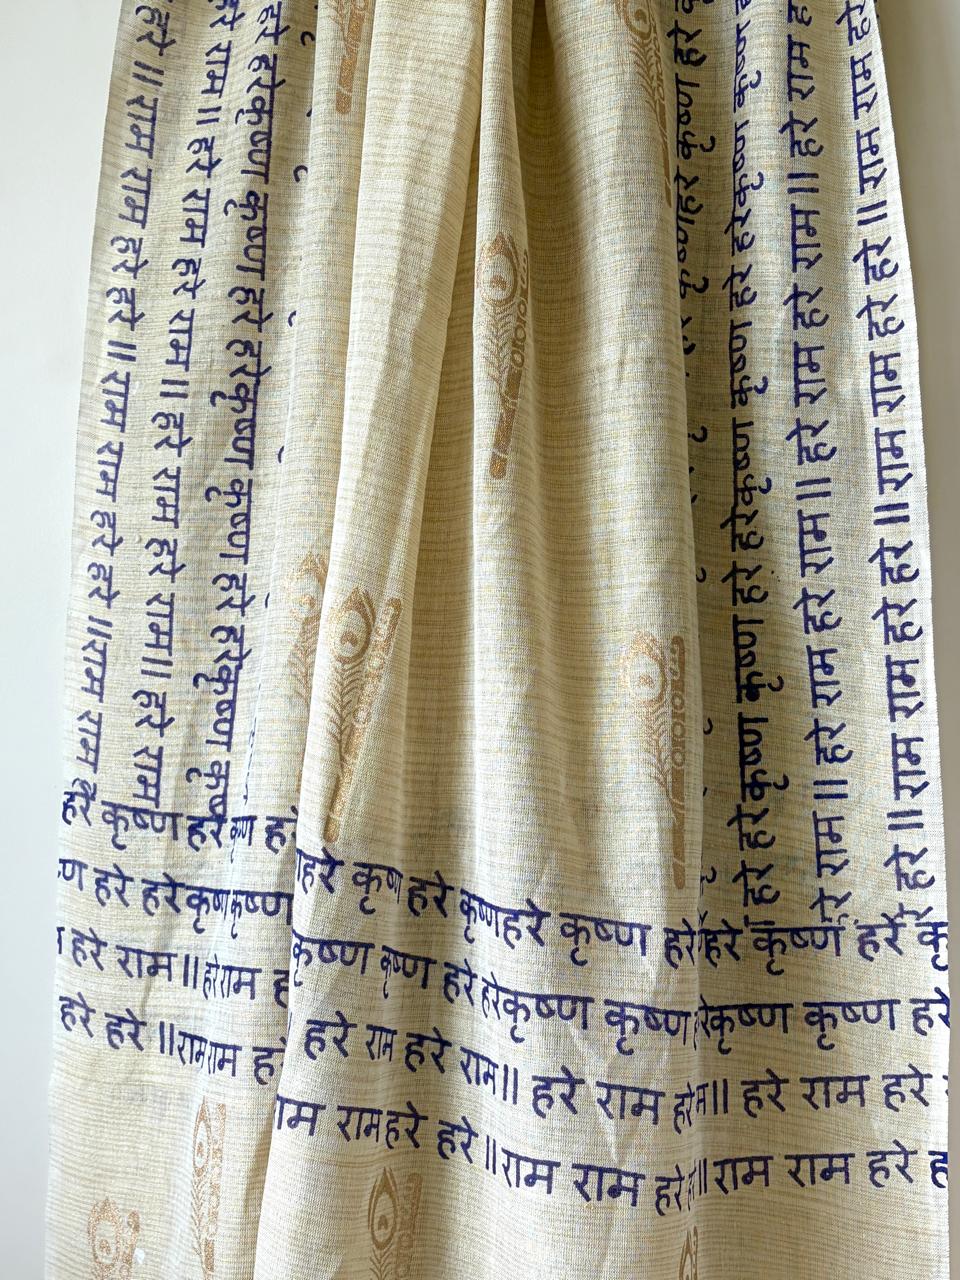 हरे ॥ राम राम हरे हरे ॥ राम राम राम हरे हरे ॥ राम राम
हरे राम ॥ हरे राम हरे राम ॥ हरे राम हरे राम ॥ हरे राम
हरे हरे कृष्ण कृष्ण हरे हरे कृष्ण कृष्ण हरे हरे कृष्ण
हरे कृष्ण कृष्ण हरे
हरे हरे कृष्ण कृष्ण हरे हरे कृष्ण कृष्ण हरे हरे कृष्ण कृष्ण
हरे राम ॥ हरे राम हरे राम ॥ हरे राम हरे राम ॥ हरे राम हरे राम
हरे ॥ राम राम हरे हरे ॥ राम राम हरे हरे ॥ राम राम हरे हरे
हरे कृष्ण हरे हरे हरे कृष्ण हरे कृष्ण हरे कृष्ण हरे हरे कृष्ण हरे
हरे हरे कृष्ण कृष्ण कृष्ण कृष्ण हरे हरे कृष्ण कृष्ण कृष्ण कृष्ण हरे
हरे राम ॥ हरे राम हरे राम हरे राम ॥ हरे राम हरे ॥ हरे राम हरे
हरे हरे ॥ राम राम राम हरे हरे ॥ राम राम हरे ॥ राम राम हरे